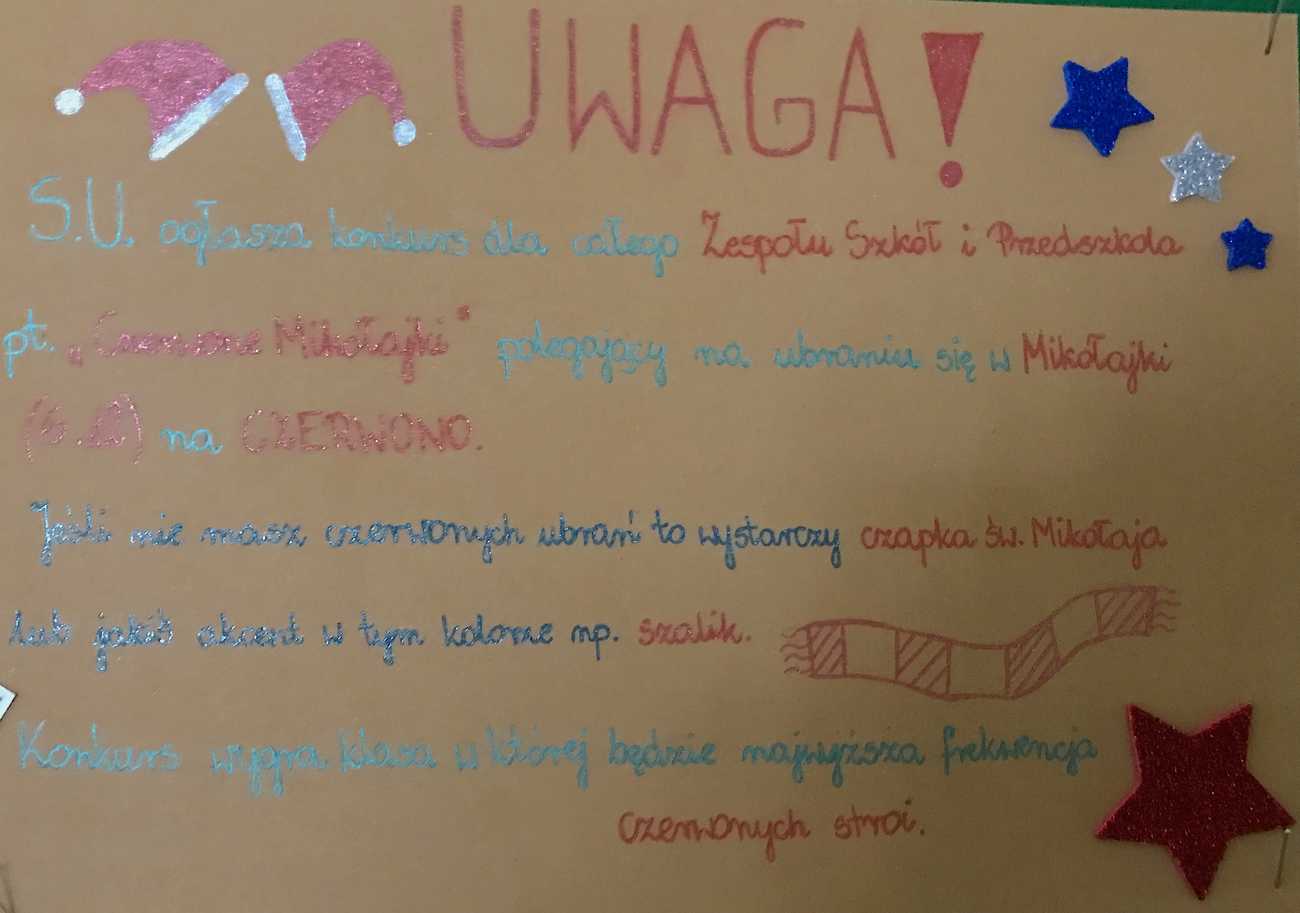 UWAGA!
S.U. ogłasza konkurs dla całego Zespołu Szkół i Przedszkola
pt. „Czerwone Mikołajki" polegający na ubraniu się w Mikołajki
(6.12) na CZERWONO.
Jeśli nie masz czerwonych ubrań to wystarczy czapka św. Mikołaja
lub jakiś akcent w tym kolorze np. szalik.
Konkurs wygra klasa w której będzie najwyższa frekwencja
czerwonych stroi.